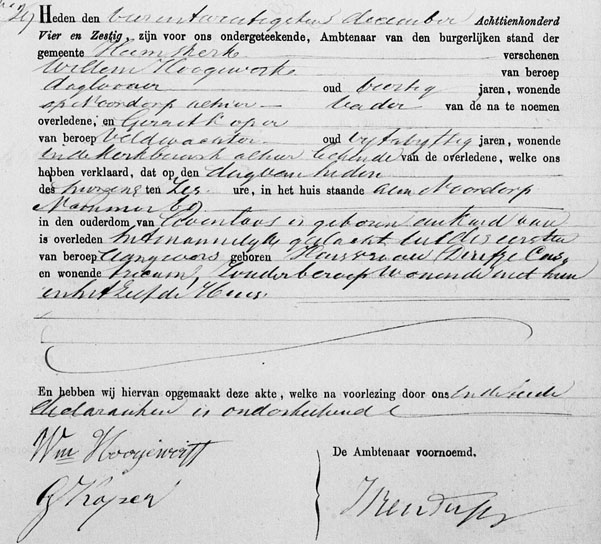 29
Heden den vierentwintigsten december Achttienhonderd
Vier en Zestig, zijn voor ons ondergeteekende, Ambtenaar van den burgerlijken stand der
gemeente Heemskerk verschenen
Willem Hoogewerf van beroep
daglooner oud veertig jaren, wonende
op Noordorp alhier vader van de na te noemen
overledene, en Gerrit Koper
van beroep Veldwachter oud vyfenvyftig jaren, wonende
in de Kerkbuurt alhier bekende van de overledene, welke ons
hebben verklaard, dat op den dag van heden
des morgens ten Zes ure, in het huis staande aan Noordorp
Nommer
in den ouderdom van levenloos is geboren een kind van
is overleden het mannelyk geslacht uit des eersten
van beroep geboren Huisvrouw
en wonende Zonder beroep Wonende met hem
in het zelfde Huis
En hebben wij hiervan opgemaakt deze akte, welke na voorlezing door ons en de beide
declaranten is onderteekend
Wm Hoogewerff
G Koper
De Ambtenaar voornoemd.